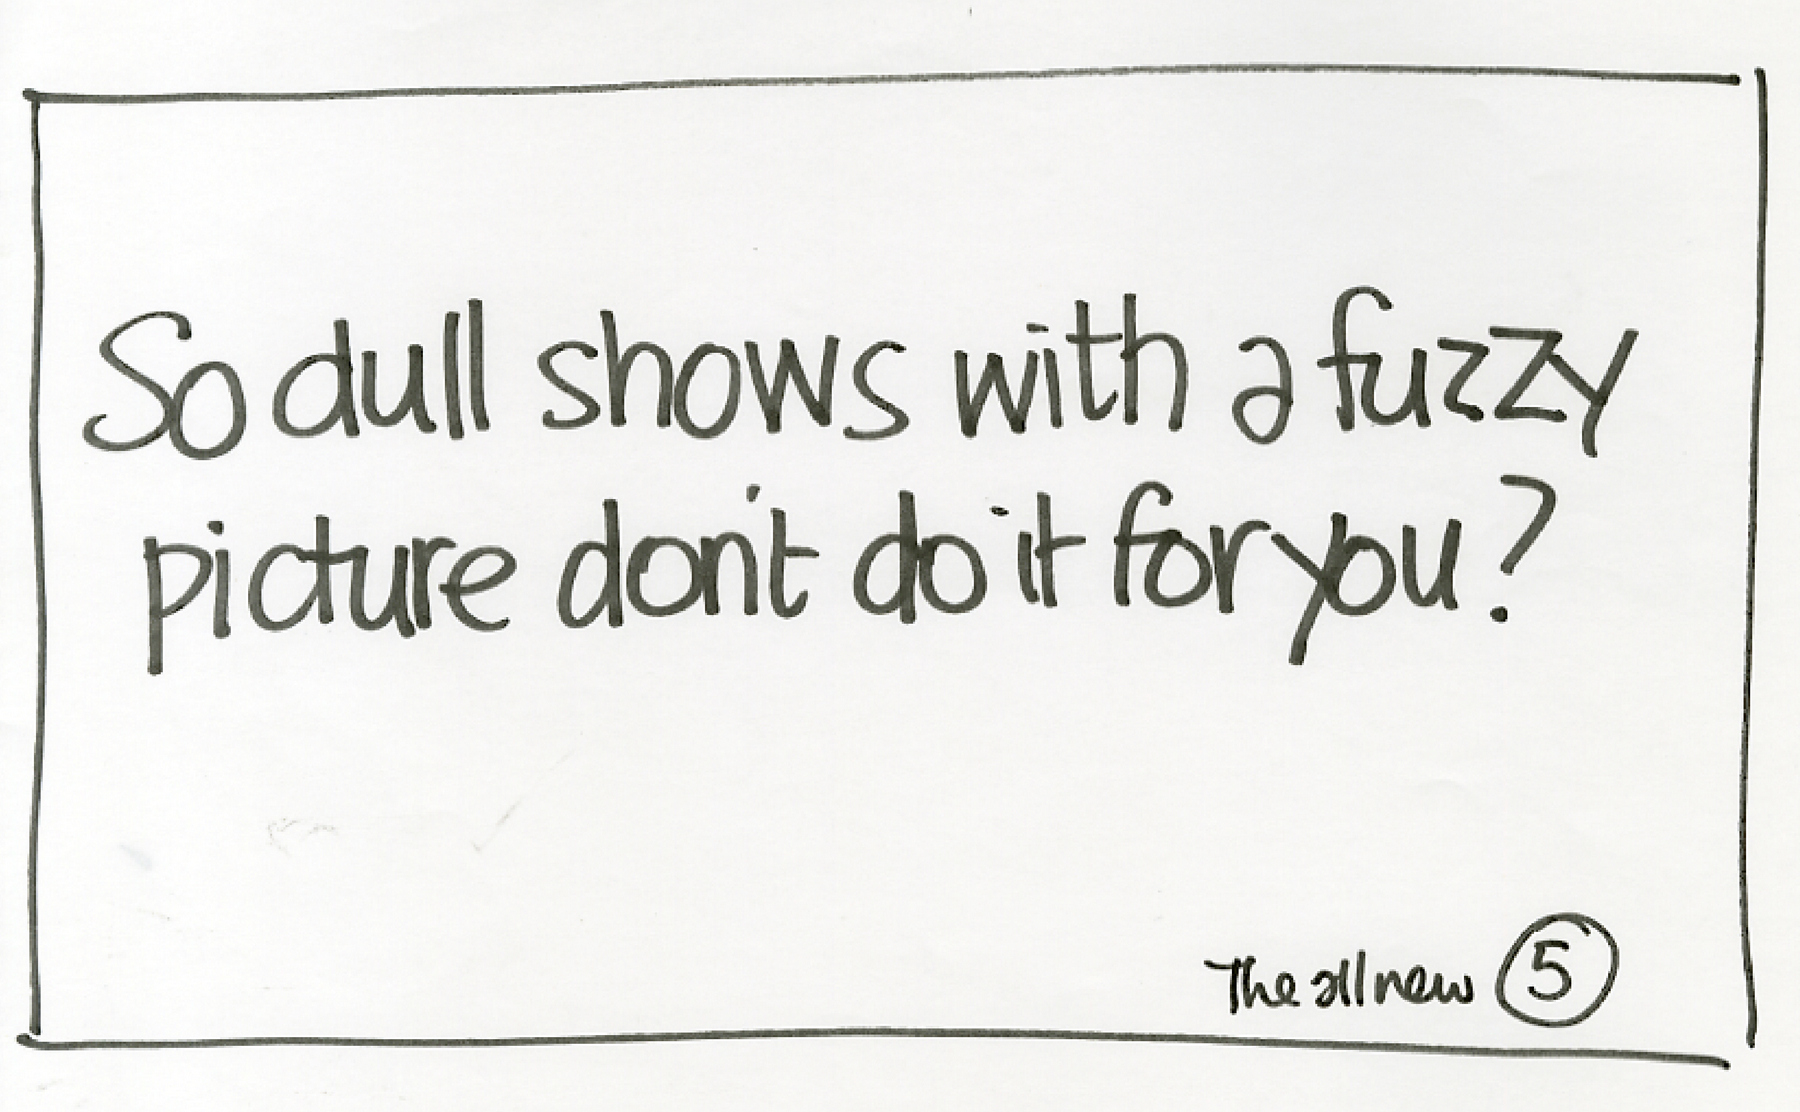 So dull shows with a fuzzy
picture don't do it for you?
The all new 5